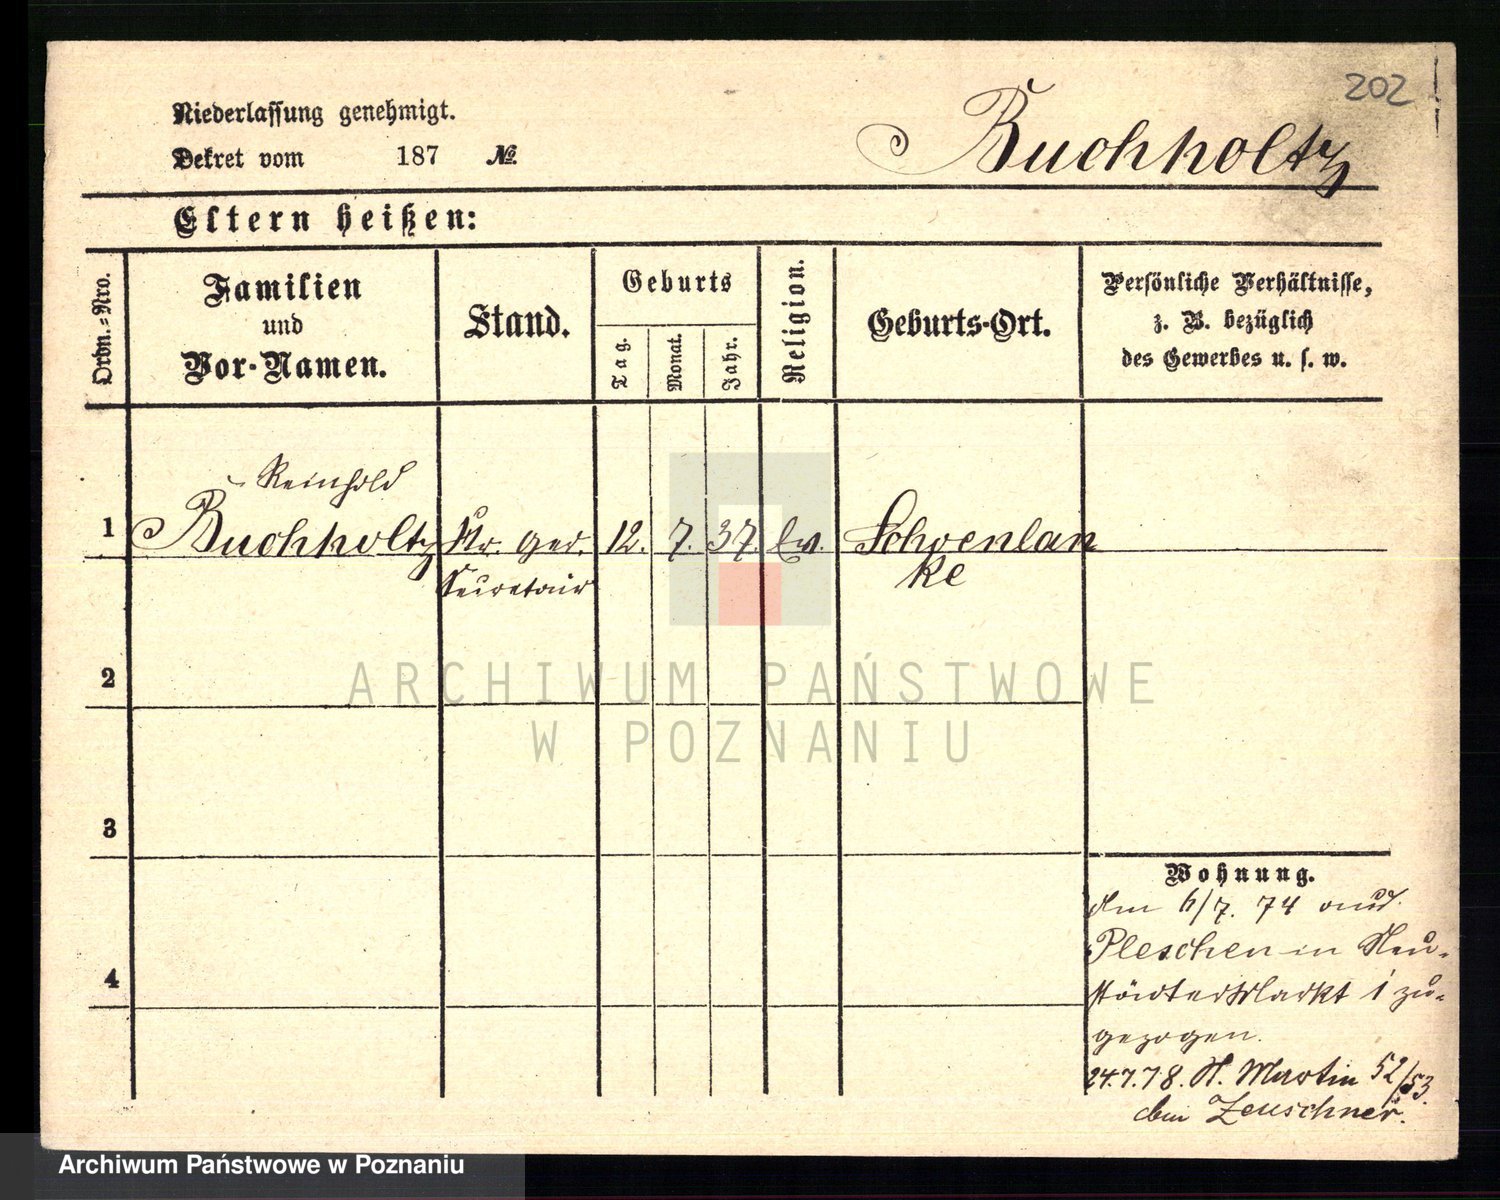 202
Niederlassung genehmigt.
Dekret vom 187 №.
Buchholtz
Eltern heißen:
Ordn.-Nro.
Familien
und
Vor-Namen.
Stand.
Geburts
Tag.
Monat.
Jahr.
Religion.
Geburts-Ort.
Persönliche Verhältnisse,
z. B. bezüglich
des Gewerbes u. s. w.
Reinhold
1 Buchholtz Kr. Ger. 12. 7. 37. Ev. Schoenlan
Secretair ke
2
3
4
ARCHIWUM PAŃSTWOWE
W POZNANIU
Wohnung.
Am 6/7. 74 aus
Pleschen in Neu-
städterMarkt 1 zu-
gezogen.
24.7.78. St. Martin 52/53.
bei Zeuschner.
Archiwum Państwowe w Poznaniu